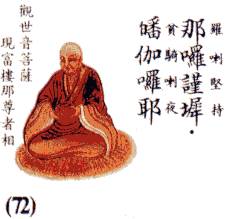 羅喇堅持
那囉謹墀.
貧騎喇夜
皤伽囉耶
觀世音菩薩
現富樓那尊者相
(72)